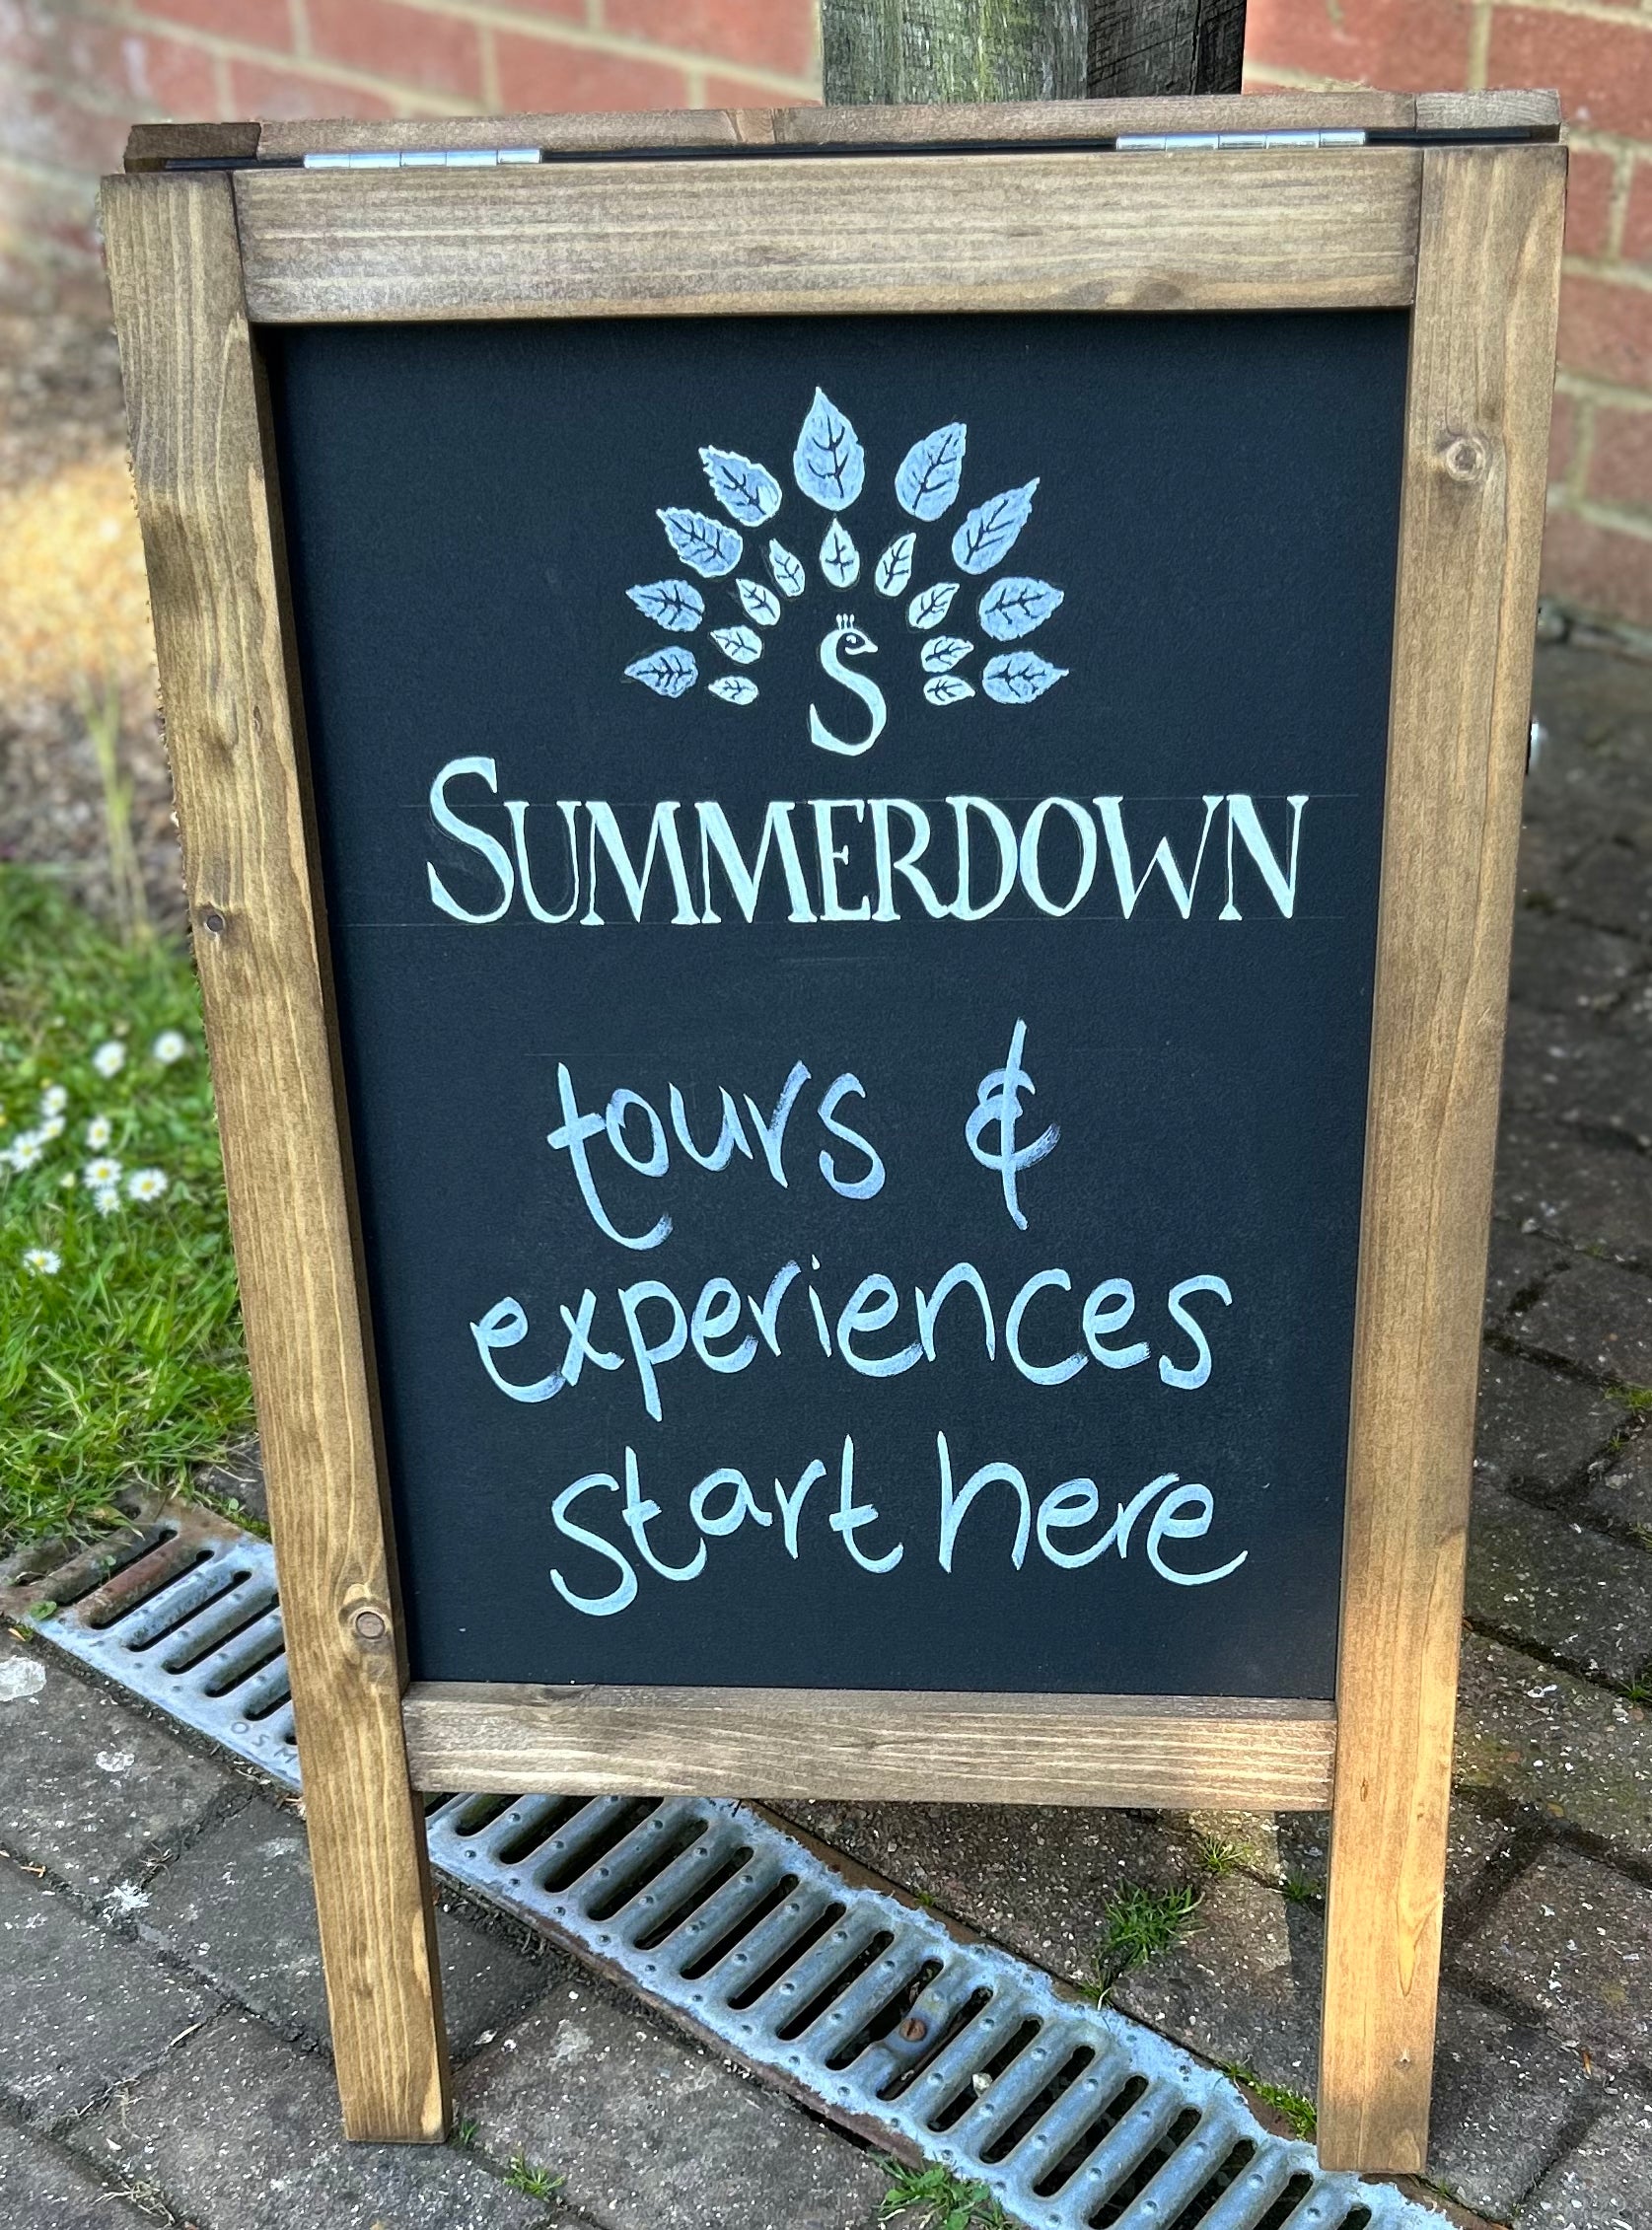 S
SUMMERDOWN
tours &
experiences
start here
OSM